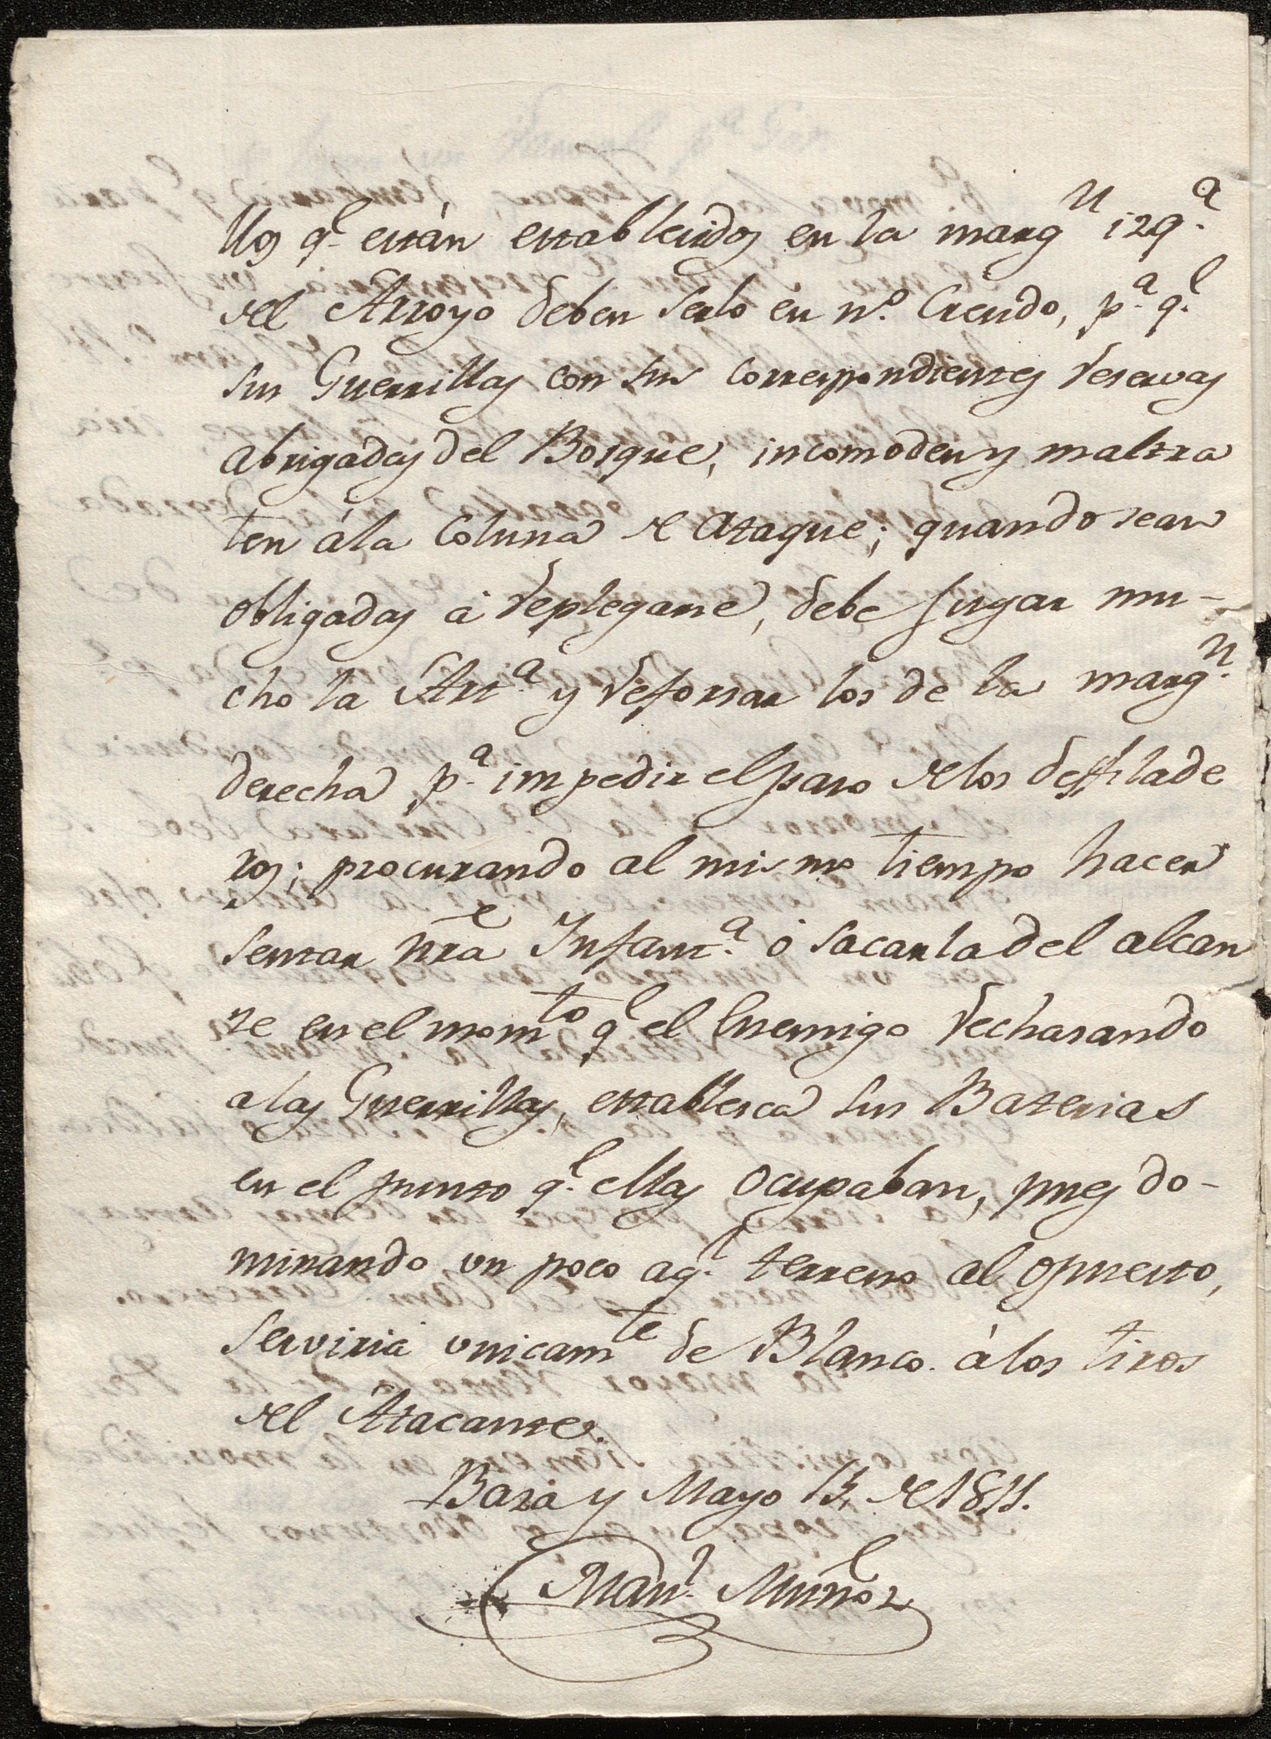 llos q.e están establecidos en la marg.n izq.a
del Arroyo deben serlo en n.o Crecido, p.a q.e
sus Guerrillas con sus correspondientes reservas
abrigadas del Bosque, incomoden y maltra
ten à la Coluna de Ataque; quando sean
obligadas à replegarse, debe jugar mu-
cho la Art.a y reforsar los de la marg.n
derecha p.a impedir el paso de los desfilade
ros; procurando al mismo tiempo hacer
sentar nra Infant.a ó sacarla del alcan
ze en el mom.to q.e el Enemigo rechasando
a las Guerrillas, establesca sus Baterias
en el punto q.e ellas Ocupaban, pues do-
minando un poco aq.l terreno al opuesto,
serviria unicam.te de Blanco à los tiros
del Atacante.
Baza y Mayo 13, de 1811.
Man.l Muñoz